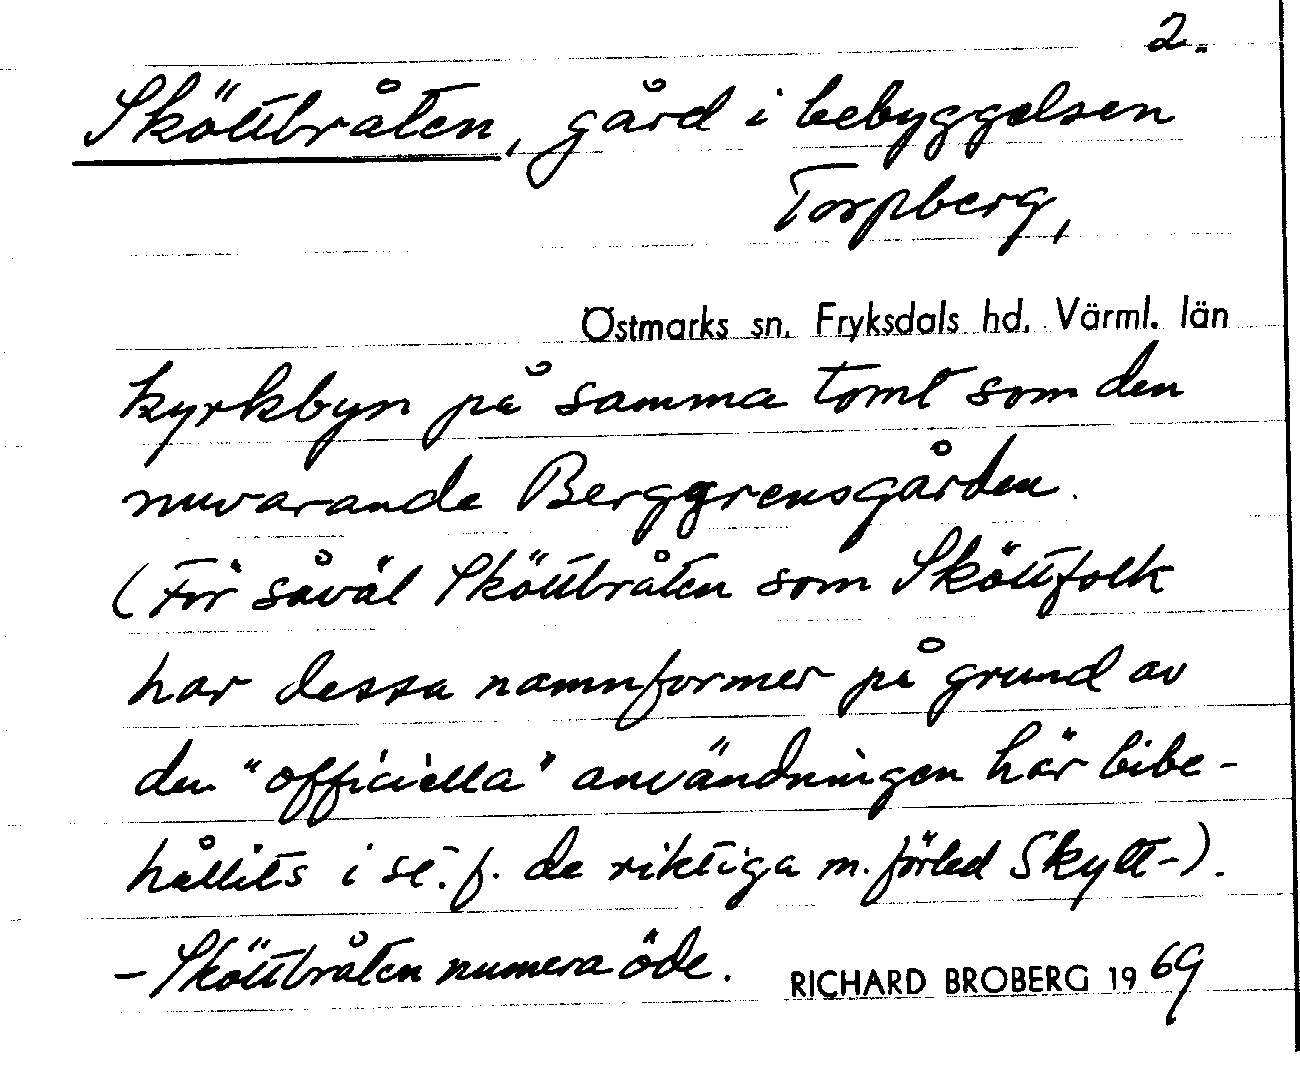 2.
Sköttbråten, gård i bebyggelsen
Torpberg,
Östmarks sn. Fryksdals hd. Värml. län
kyrkbyn på samma tomt som den
nuvarande Berggrensgården.
(För såväl Sköttbråten som Sköttfolk
har dessa namnformer på grund av
den "officiella" användningen här bibe-
hållits i st. f. de riktiga m. förled Skytt-).
- Sköttbråten numera öde. RICHARD BROBERG 1969